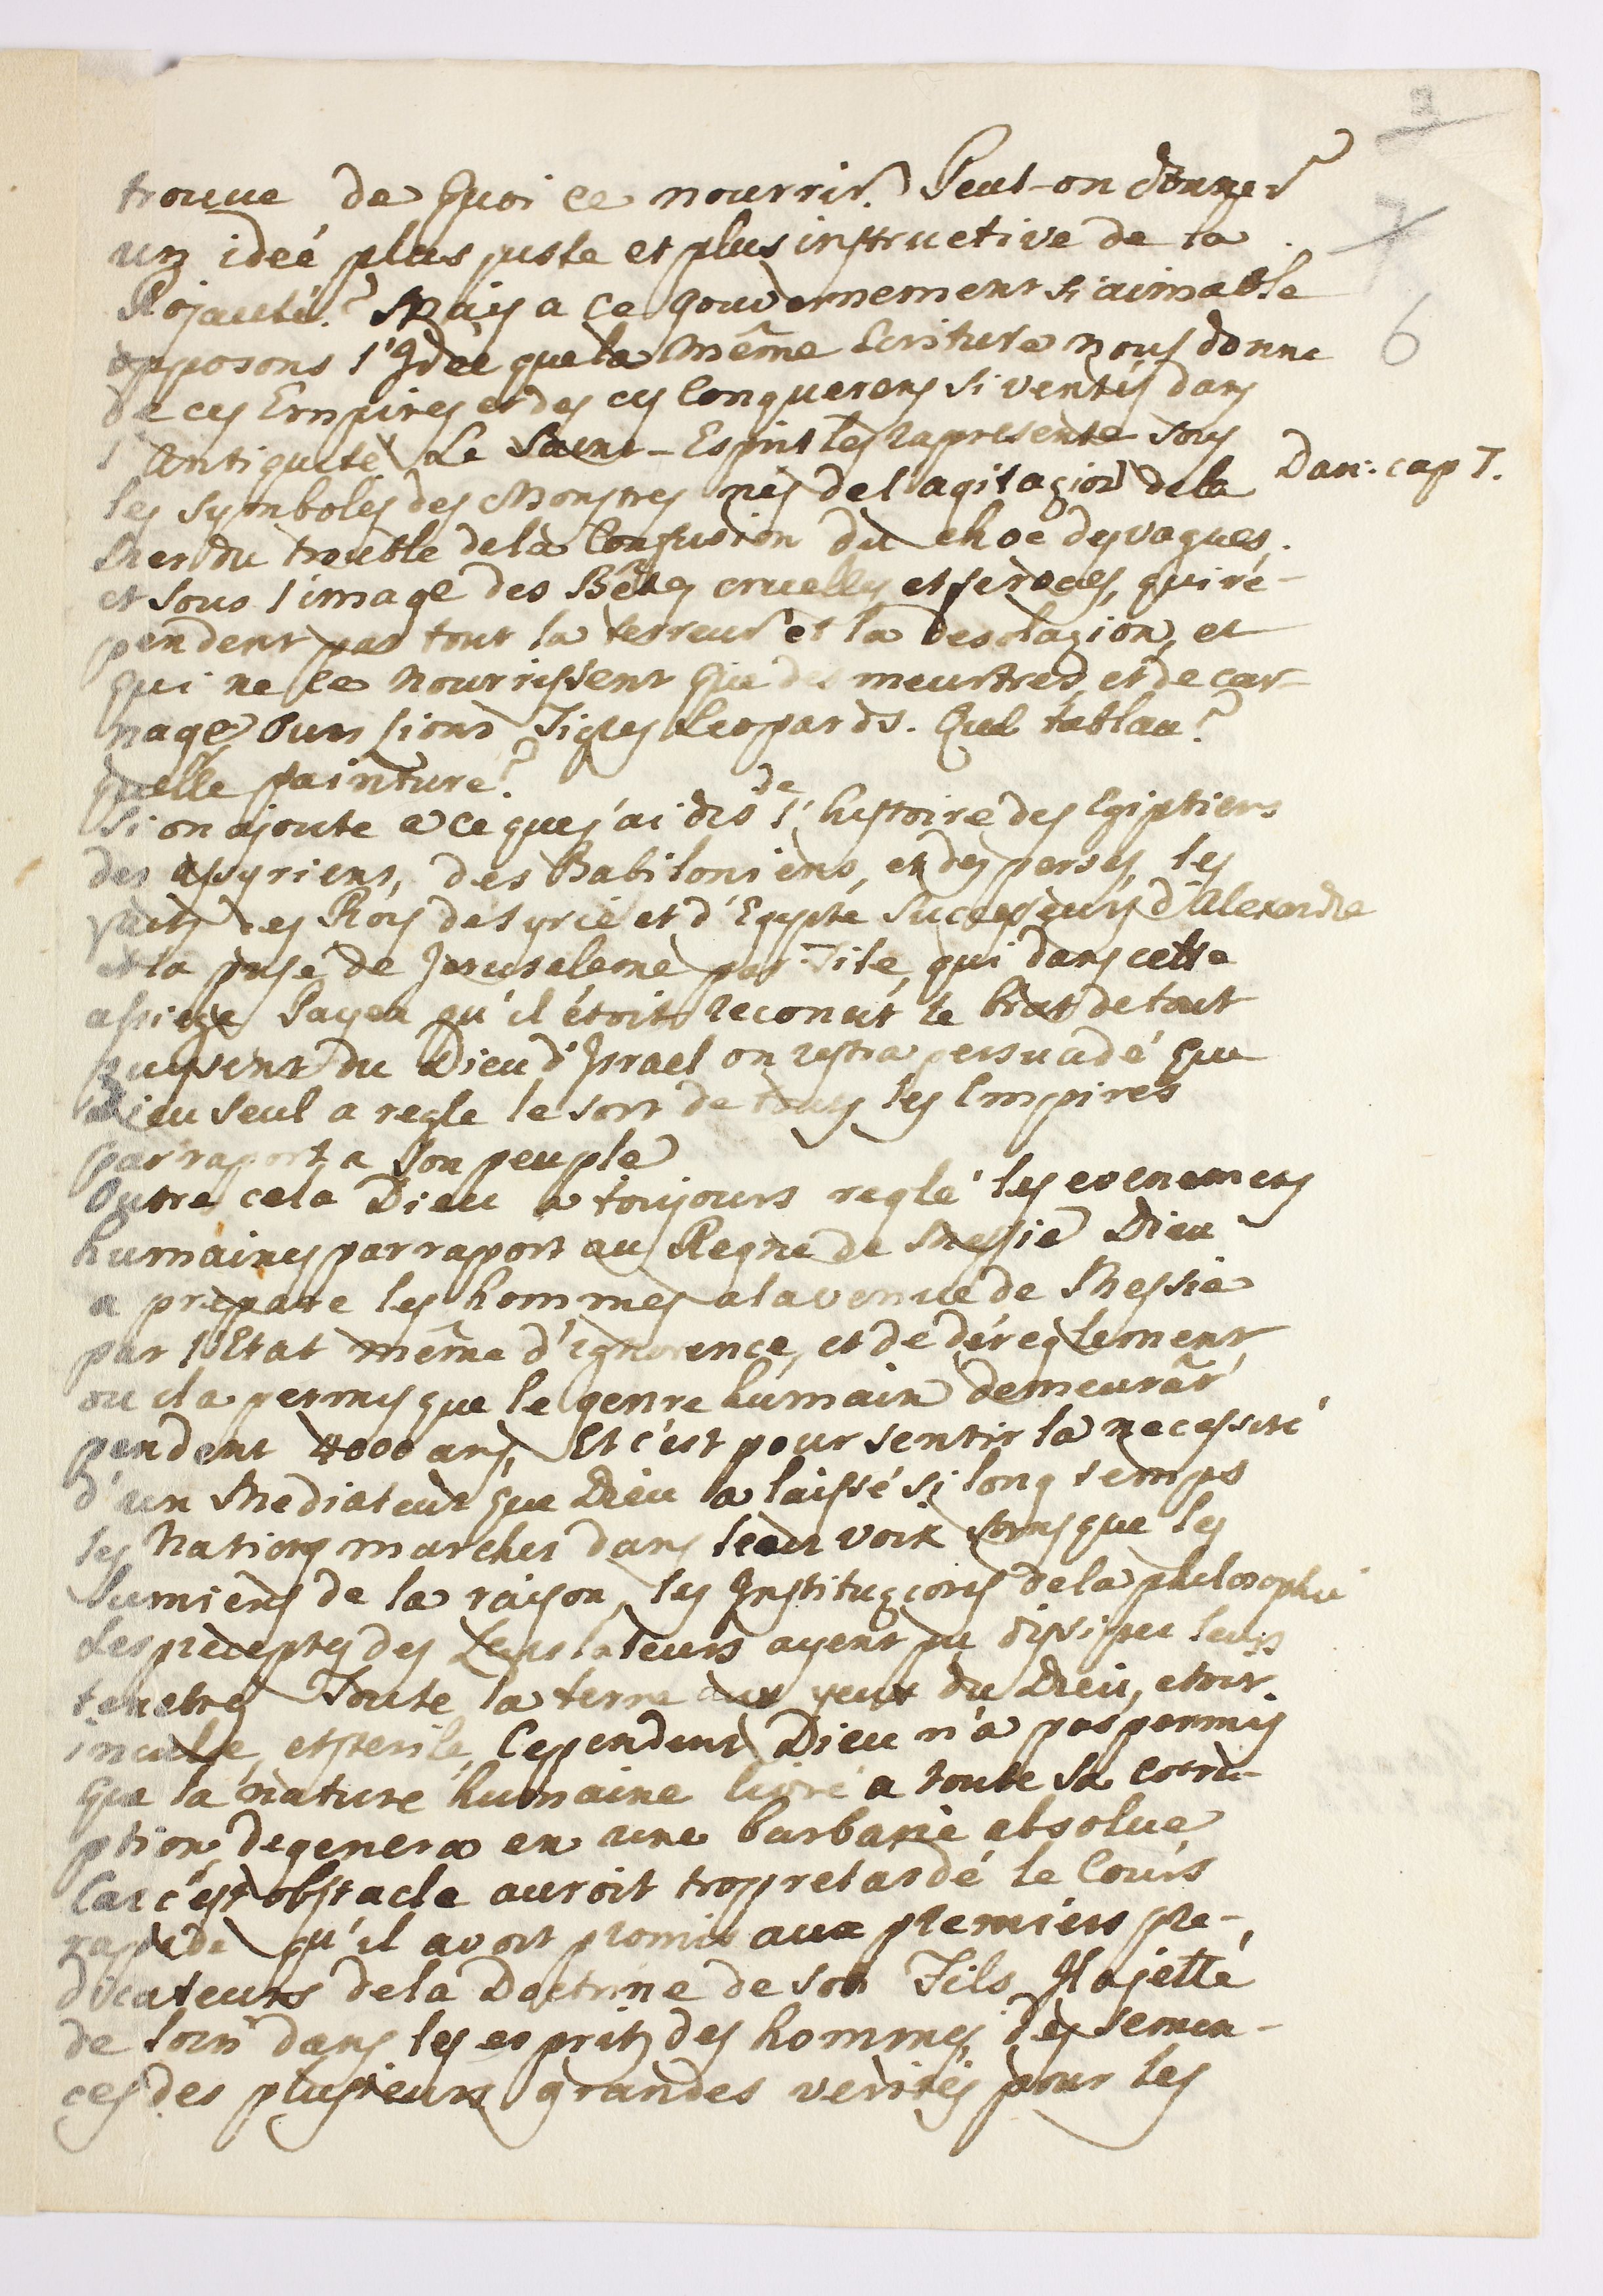 3
7
6
trouve de Quoi ce nourrir. Peut-on donner
un ideé plus juste et plus instructive de la
Rojauté? Mais a ce gouvernement si aimable
opposons l'Idée que la même Ecriture nous donne
de ces Empires et des ces Conquerens si ventés dans
l'Antiquité. Le Saint-Esprit les rapresente sous
les symboles des Monstres nés de l'agitazion de la
Dan: cap 7.
Mer du trouble de la Confusion du choc des vagues.
et sous l'image des Bêtes cruelles et feroces, qui ré-
pendent par tout la terreur et la Desolazion, et
qui ne ce nourrissent que des meurtres, et de car-
nage, Ours Lions Tigres Leopards. Quel tablau?
quelle painture?
Si on ajoute a ce ques j'ai dis de l'histoire des Egiptiens
des assyriens, des Babiloniens, et des perses, les
faits des Roys de Syrie et d'Egypte Successeurs d'Alexandre
et la prise de Jerusaleme par Tite, qui dans cette
assiege Payen qu'il étoit reconut le bras de tout
puissent du Dieu d'Israel on restra persuadé que
Dieu seul a regle le sort de tous les Empires
par raport a son peuple
Outre cela Dieu a toujours reglé les evenemens
humaines par raport au Regne de Messie Dieu
a prepare les hommes a la venue de Messie
par l'Etat même d'ignorence, et de déreglement
ou il a permis que le genre humain demeurât
pendent 4000 ans, Et c'est pour sentir la necessité
d'un Mediateur que Dieu a laissé si long temps
les Nations marcher dans leur voix sans que les
lumieres de la raison, les Instituzions de la philosophie
Les preceptes des Legislateurs ayent pu dissiper leurs
tenebres Toute la terre aux yeux du Dieu, etoit
inculte, et sterile, Cependent Dieu n'a pas permis
que la nature humaine livré a toute sa corru-
ption, degenera en une barbarie absolue
Car c'est obstacle auroit trop retardé le Cours
rapide qu'il avoit promis aux premiers pre-
dicateurs de la Doctrine de son Fils. Il a jetté
de loin dans les esprits des hommes, des semen-
ces des plusieurs grandes verités pour les